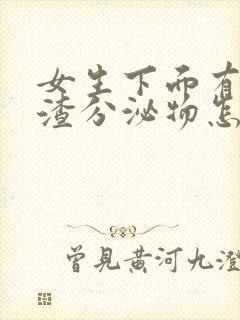 女生下而有
渣分泌物怎
曾見黄河九澄